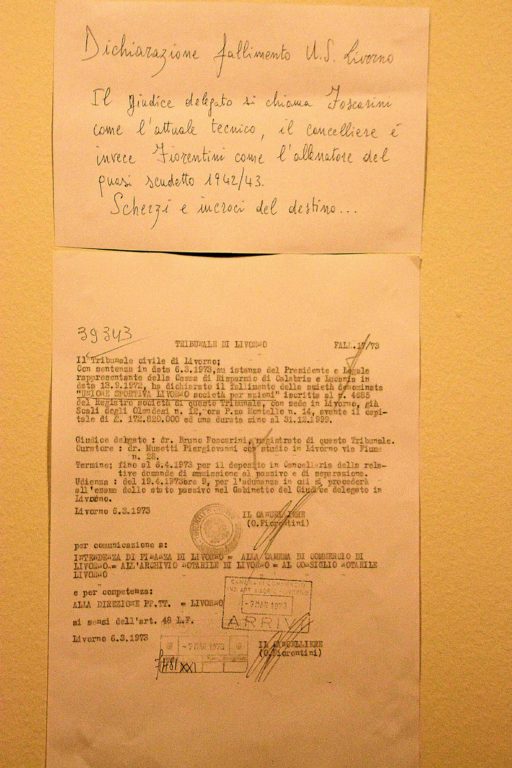 Dichiarazione fallimento U.S. Livorno
Il giudice delegato si chiama Foscarini
come l'attuale tecnico, il cancelliere é
invece Fiorentini come l'allenatore del
quasi scudetto 1942/43.
Scherzi e incroci del destino...
39343
TRIBUNALE DI LIVORNO FALL.17/73
Il Tribunale civile di Livorno;
Con sentenza in data 6.3.1973, su istanza del Presidente e Legale
rappresentante della Cassa di Risparmio di Calabria e Lucania in
data 13.9.1972, ha dichiarato il fallimento della società denominata
"UNIONE SPORTIVA LIVORNO società per azioni" iscritta al n. 4685
del Registro società di questo Tribunale, con sede in Livorno, già
Scali degli Olandesi n. 12, ora P.zza Montello n. 14, avente il capi-
tale di £. 172.820.000 ed una durata sino al 31.12.1999.
Giudice delegato : dr. Bruno Foscarini, magistrato di questo Tribunale.
Curatore : dr. Musetti Piergiovanni con studio in Livorno via Fiume
n. 28.
Termine: fino al 6.4.1973 per il deposito in Cancelleria delle rela-
tive domande di ammissione al passivo e di separazione.
Udienza : del 19.4.1973 ore 9, per l'adunanza in cui si procederà
all'esame dello stato passivo nel Gabinetto del Giudice delegato in
Livorno.
Livorno 6.3.1973 IL CANCELLIERE
(O.Fiorentini)
per comunicazione a:
INTENDENZA DI FINANZA DI LIVORNO = ALLA CAMERA DI COMMERCIO DI
LIVORNO = ALL'ARCHIVIO NOTARILE DI LIVORNO = AL CONSIGLIO NOTARILE
LIVORNO
e per competenza:
ALLA DIREZIONE PP.TT. = LIVORNO
- 7 MAR 1973
ARRIVO
ai sensi dell'art. 48 L.F.
Livorno 6.3.1973 IL CANCELLIERE
(O.Fiorentini)
- 7 MAR 1973
XXI